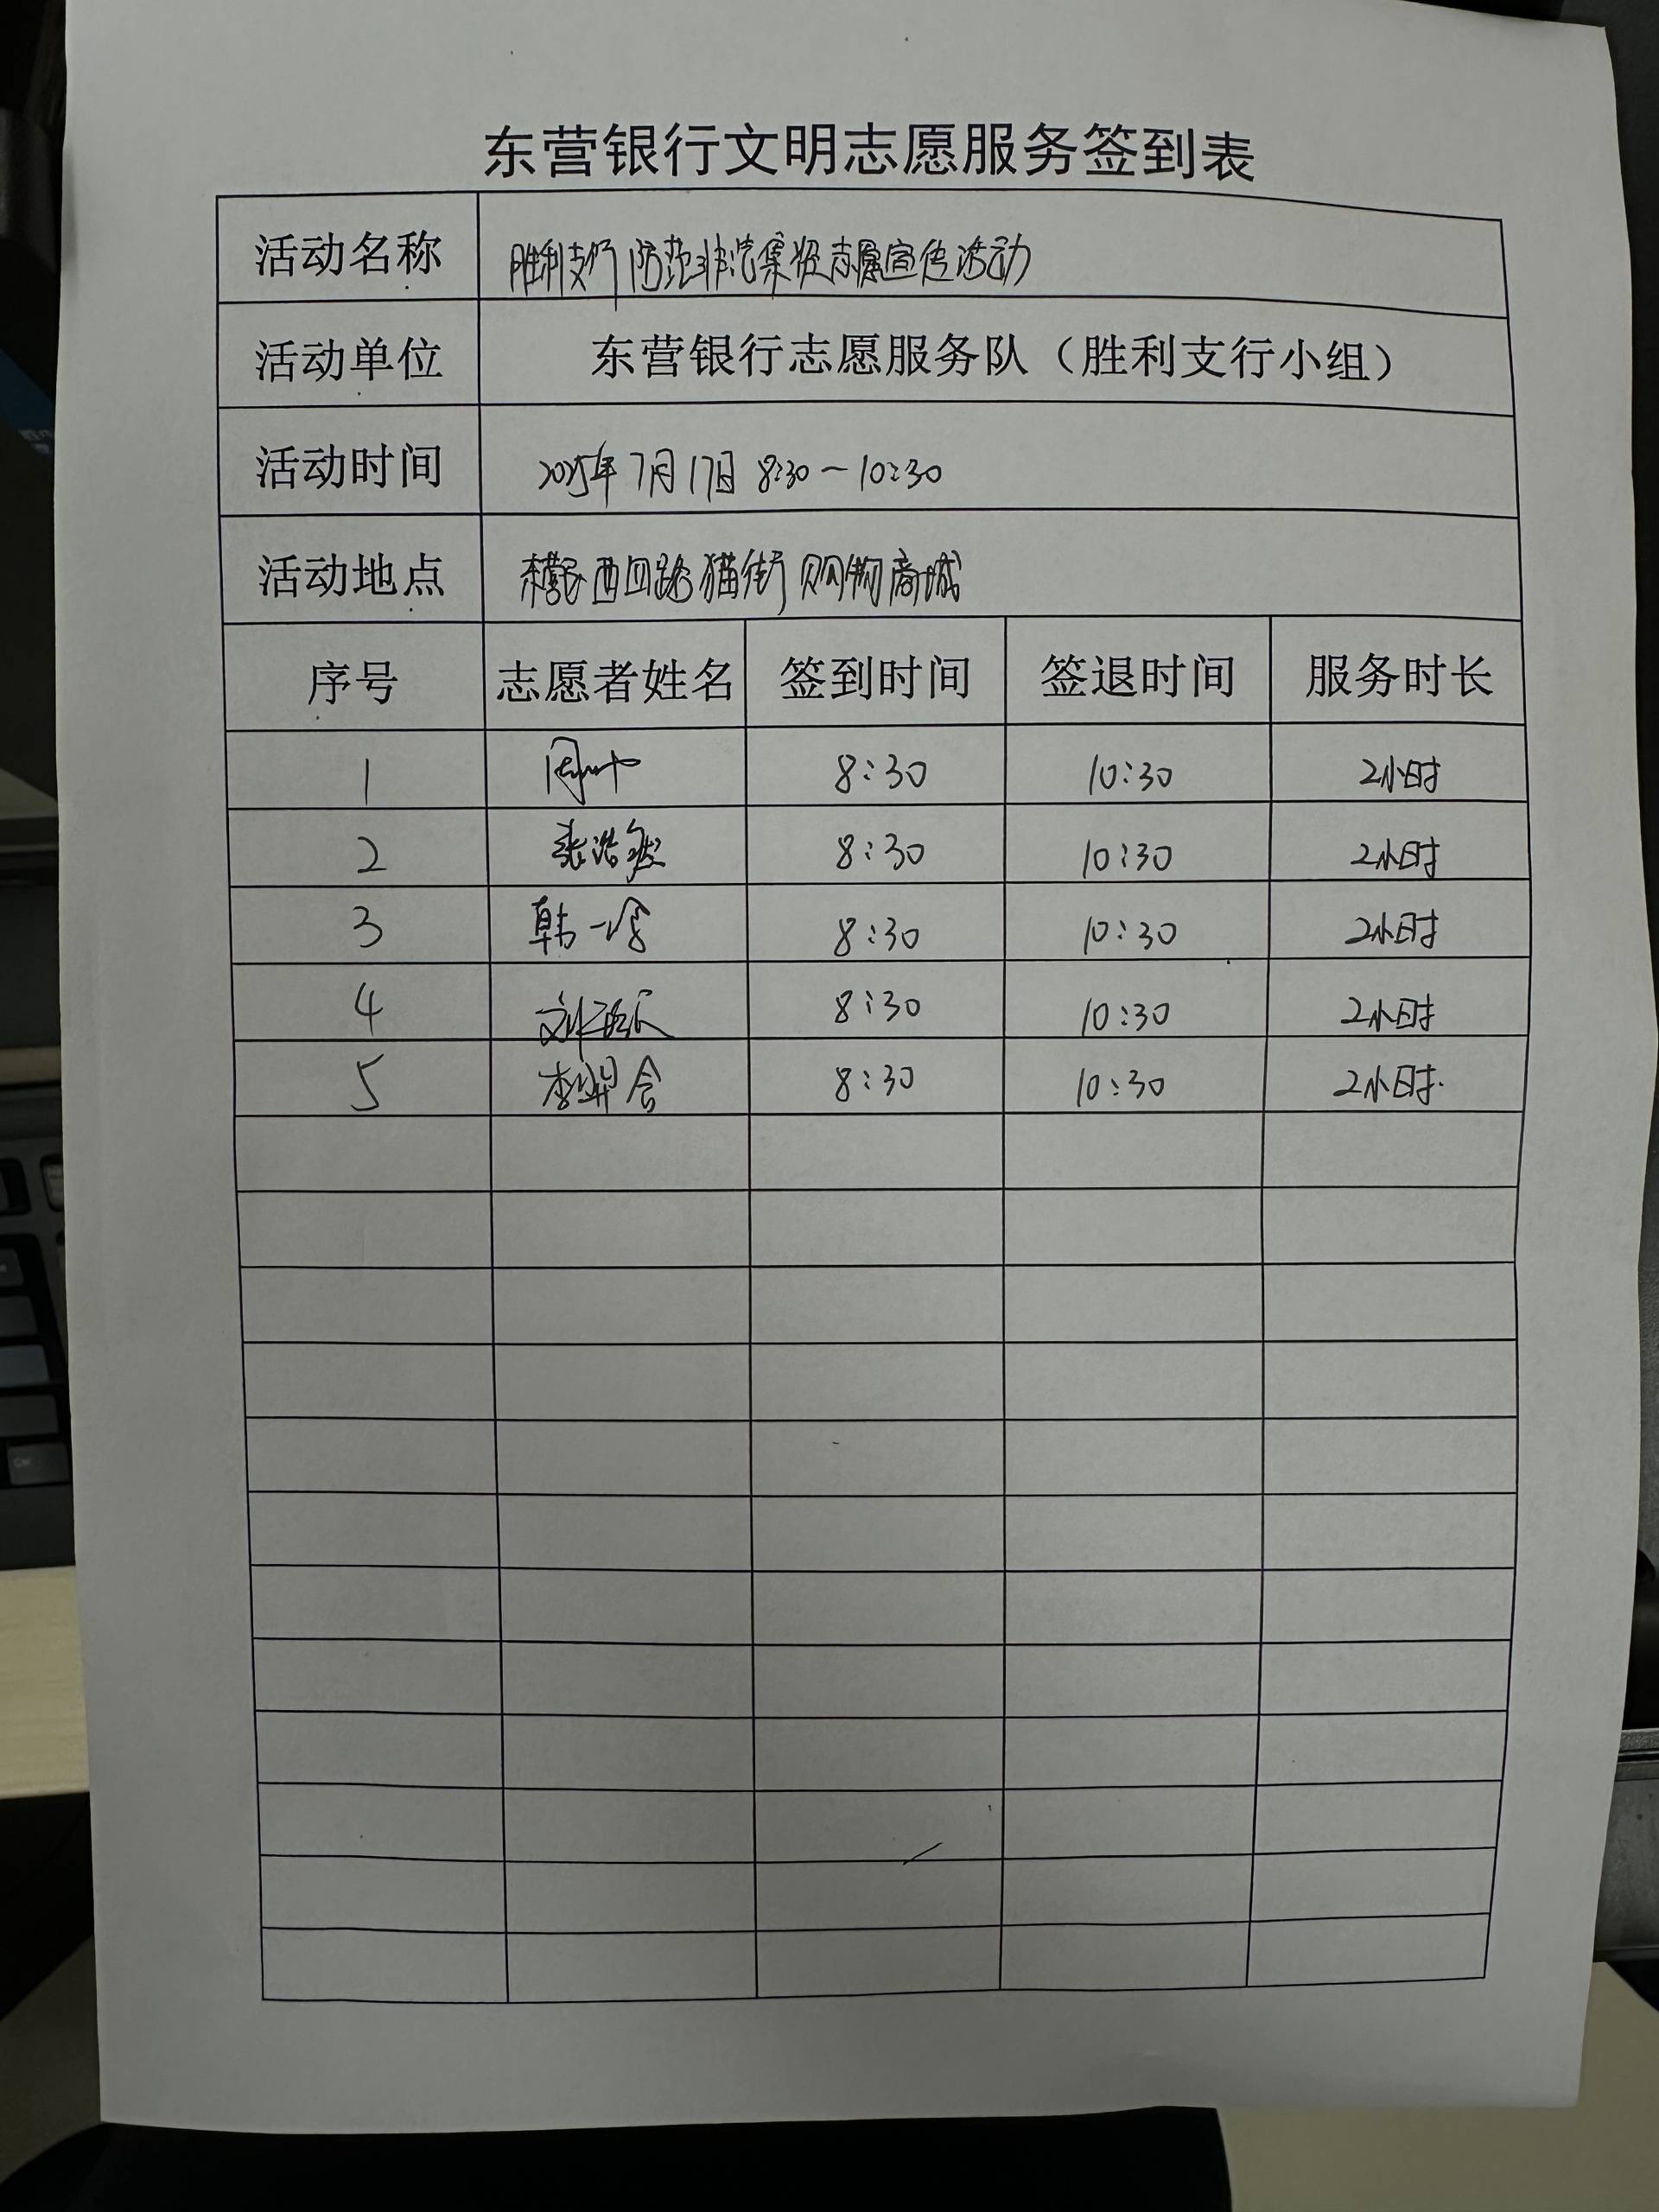 东营银行文明志愿服务签到表
活动名称 胜利支行防范非法集资志愿宣传活动
活动单位 东营银行志愿服务队（胜利支行小组）
活动时间 2025年7月17日 8:30-10:30
活动地点 西四路猫街购物商城
序号 志愿者姓名 签到时间 签退时间 服务时长
1 8:30 10:30 2小时
2 张浩 8:30 10:30 2小时
3 韩一 8:30 10:30 2小时
4 8:30 10:30 2小时
5 李 8:30 10:30 2小时